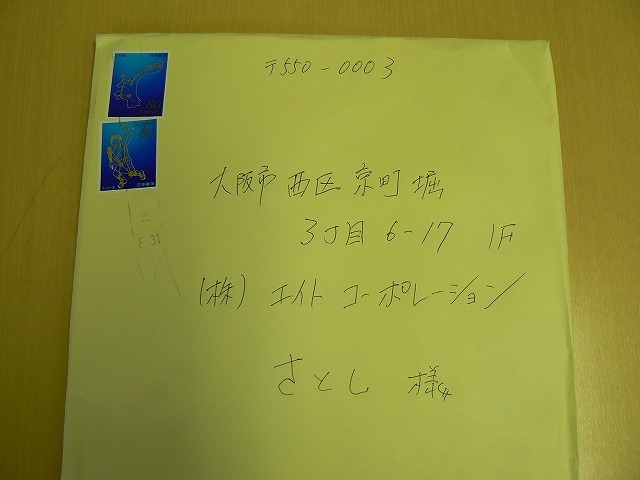 〒550-0003
大阪市西区京町堀
3丁目6-17 1F
(株)エイトコーポレーション
さとし 様
80
80
日本郵便